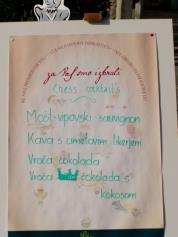 za Vas smo izbrali
Chess cocktail's
Mošt-vipavski sauvignon
Kava s cimetovim likerjem
Vroča čokolada
Vroča čokolada s
kokosom